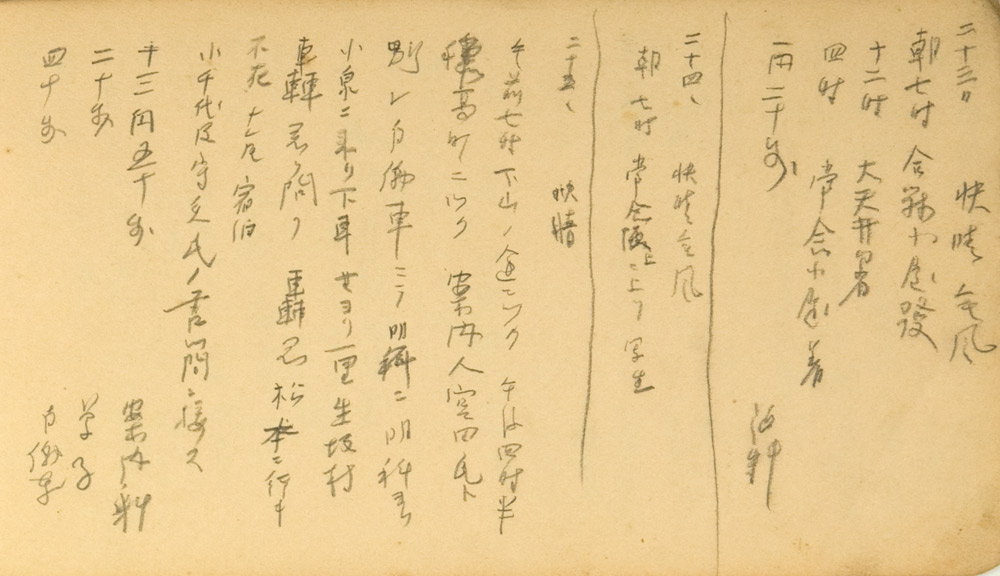 二十三日 快晴 無風
朝七時 合戦小屋發
十二時 大天井着
四時 常念小屋着
一円二十銭
二十四、 快晴無風
朝 七時 常念頂上ニ上リ写生
二十五、 快晴
午前七時下山ノ途ニツク 午後四時半
穂高町ニツク 案内人 氏ト
別レ自働車ニテ明科ニ 明科ヨリ
小泉ニ乗リ下車 廿ヨリ一里生坂村
車轉君ヲ問フ 君松本ニ行キ
不在 宿泊
小千代 氏ノ訪問ニ接ス
十三円五十銭 案内料
二十銭 菓子
四十銭 自働車